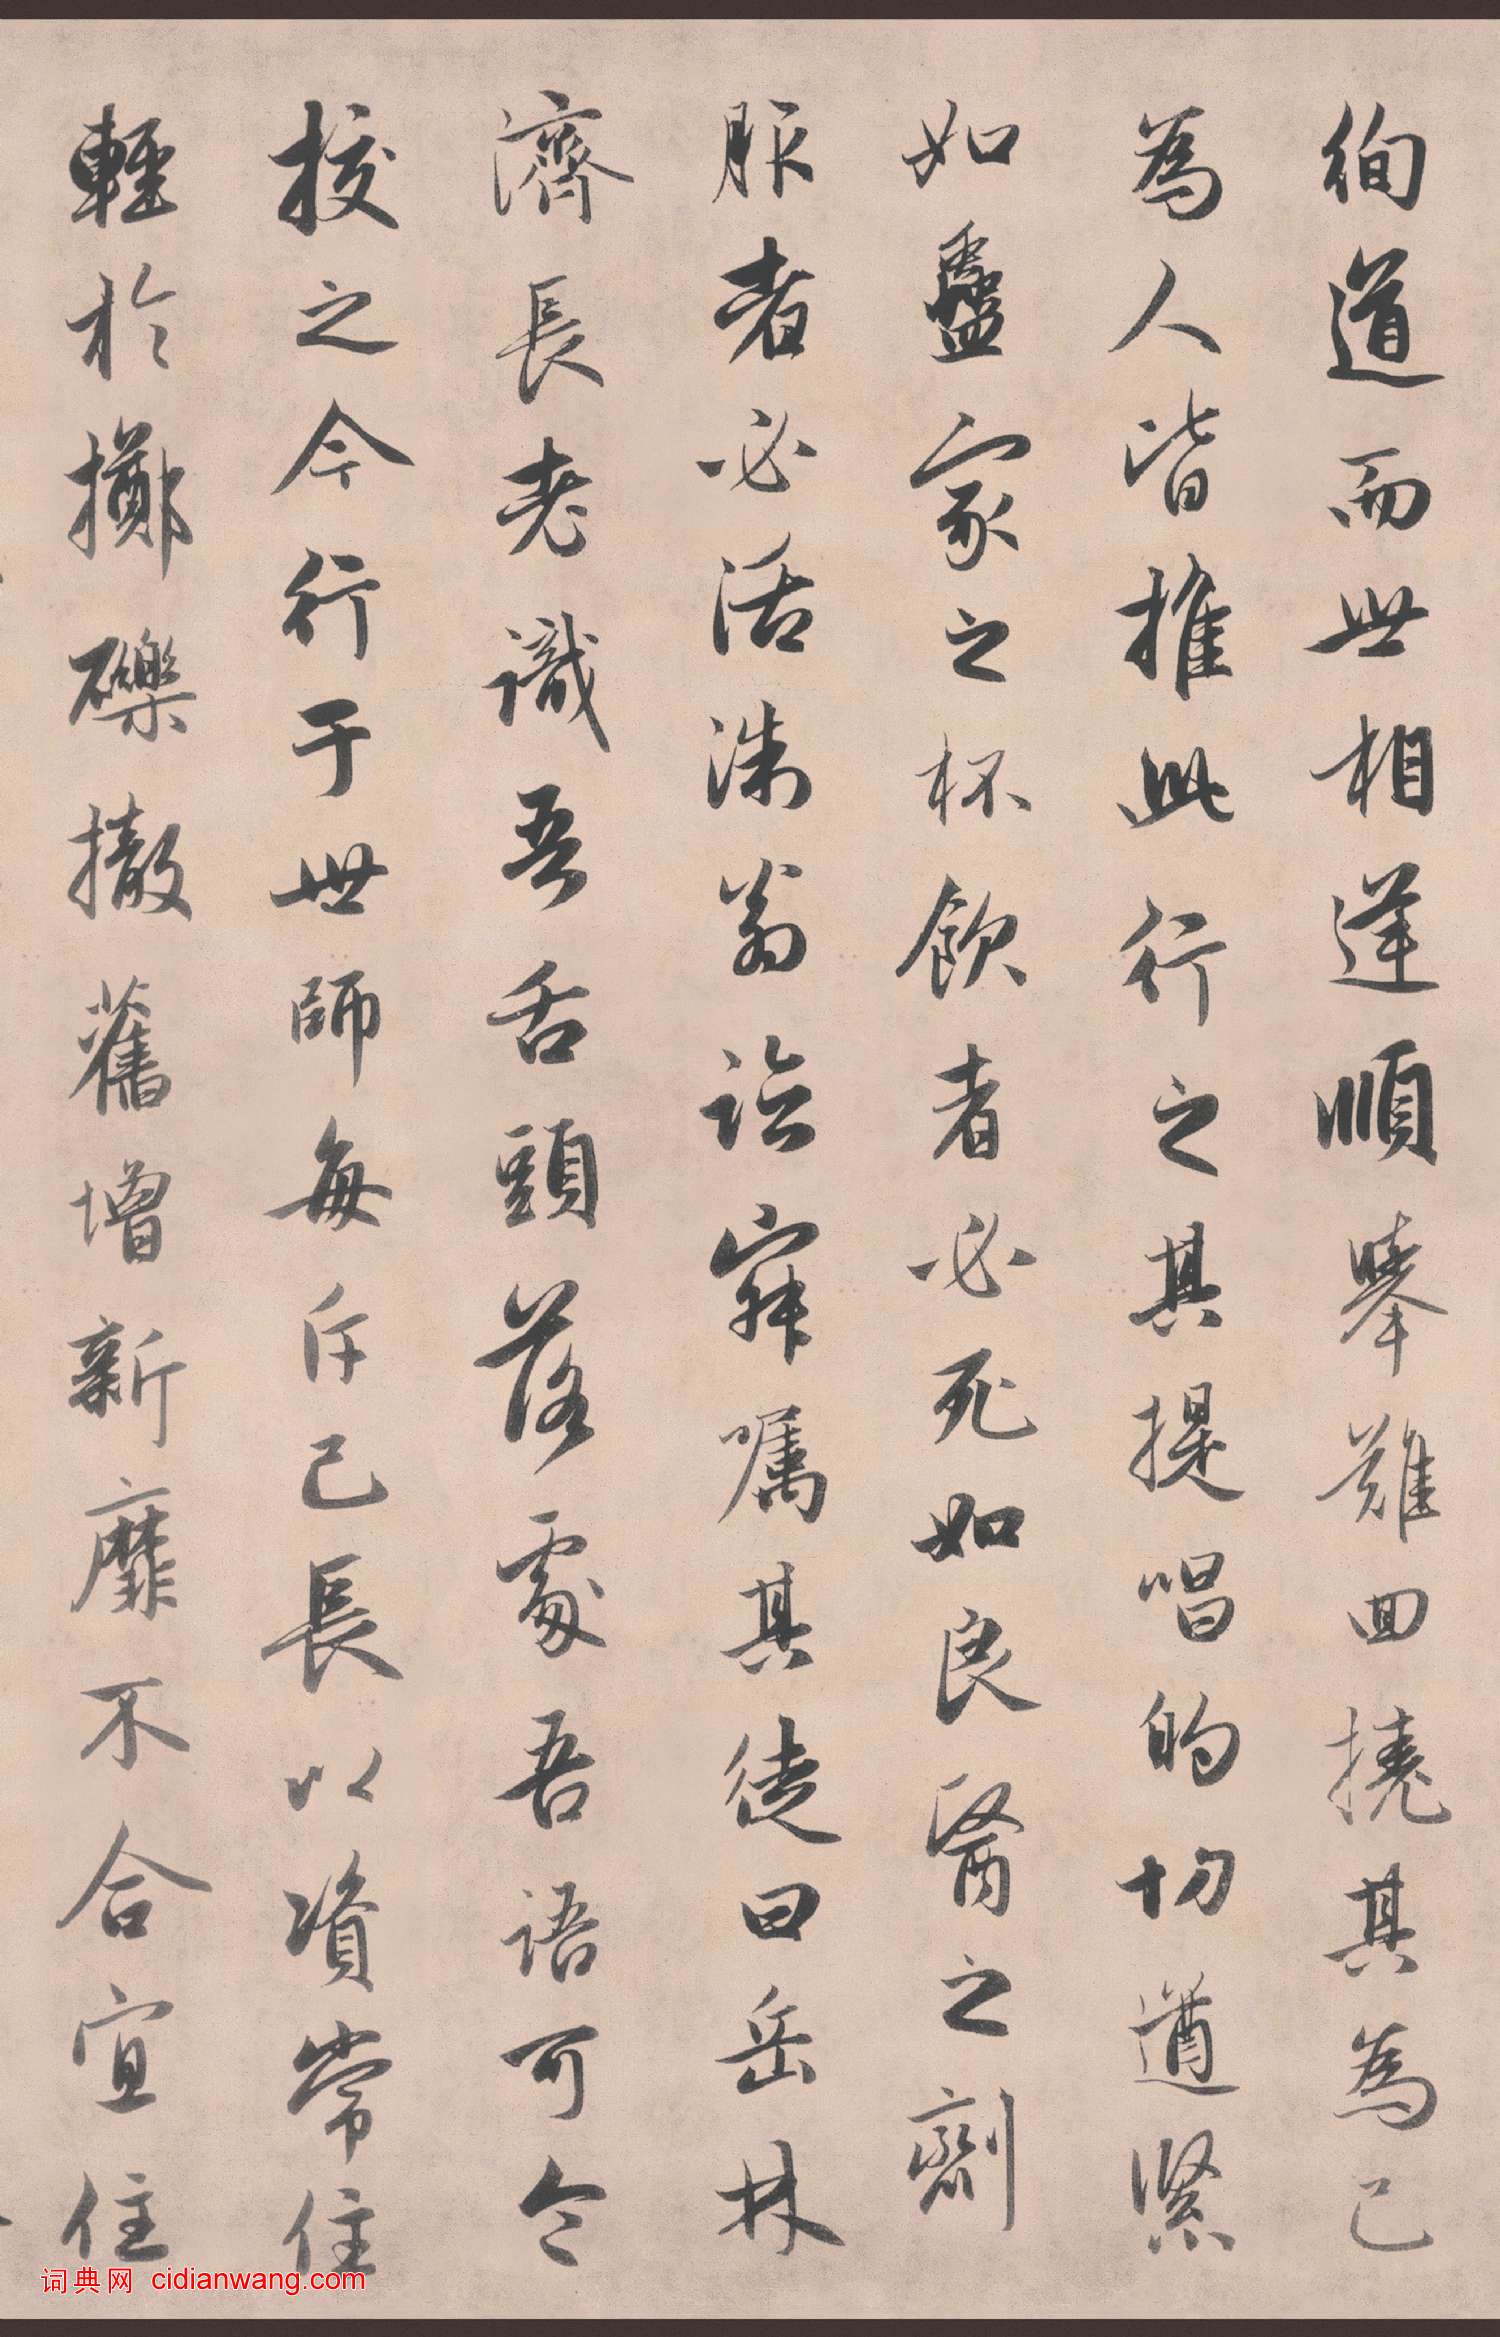 徇道而世相逢順舉難回撓其為己
為人皆推此行之其提唱的切遒緊
如蠱家之杯飲者必死如良醫之劑
服者必活洙翁詮寐囑其徒曰岳林
濟長老識吾舌頭落處吾語可令
挍之今行于世師每斥己長以資常住
輕於擲礫撤舊增新靡不合宜住
词典网 cidianwang.com